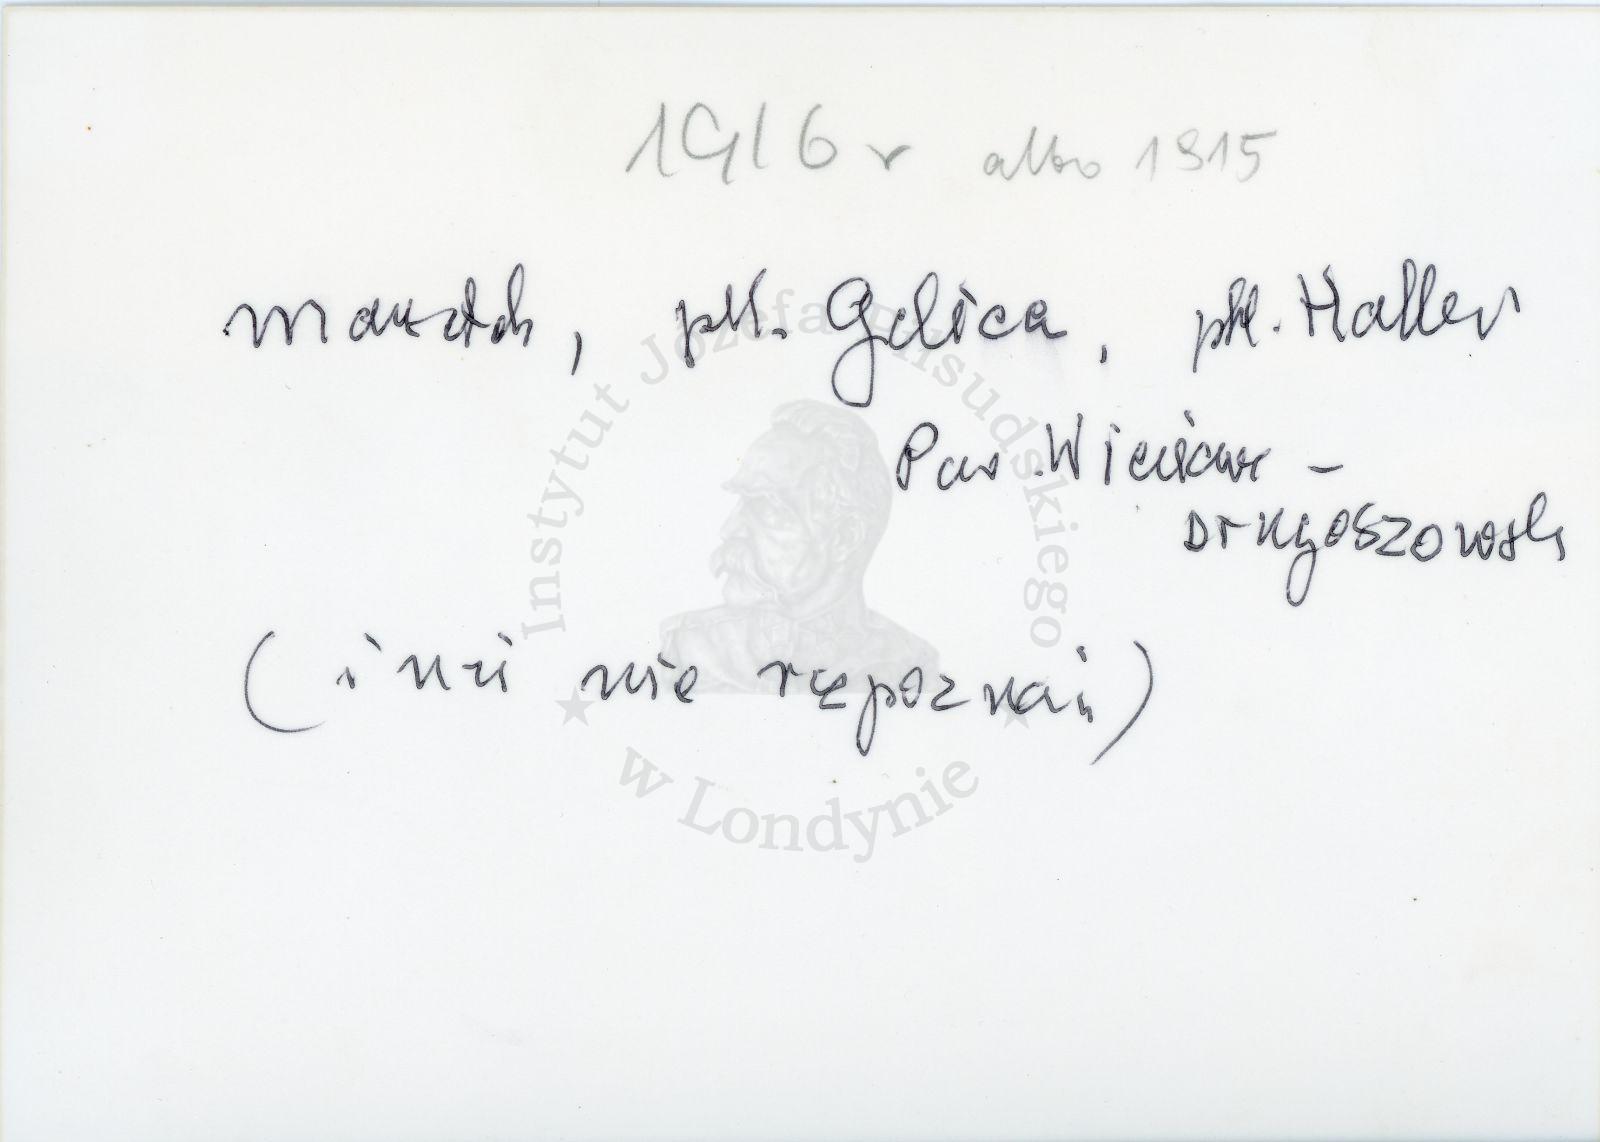 1916 r albo 1915
Marszałek, płk. Galica, płk. Haller
Por. Wieniawa -
Długoszowski
(inni nie rozpoznani)
Instytut Józefa Piłsudskiego
w Londynie